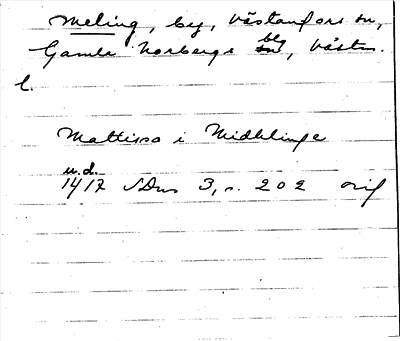 Meling, by, Västanfors sn,
Gamla Norbergs blg, Västm.
l.
Mattissa i Midhlinge
u.d.
1417 SDns 3, s. 202 orig